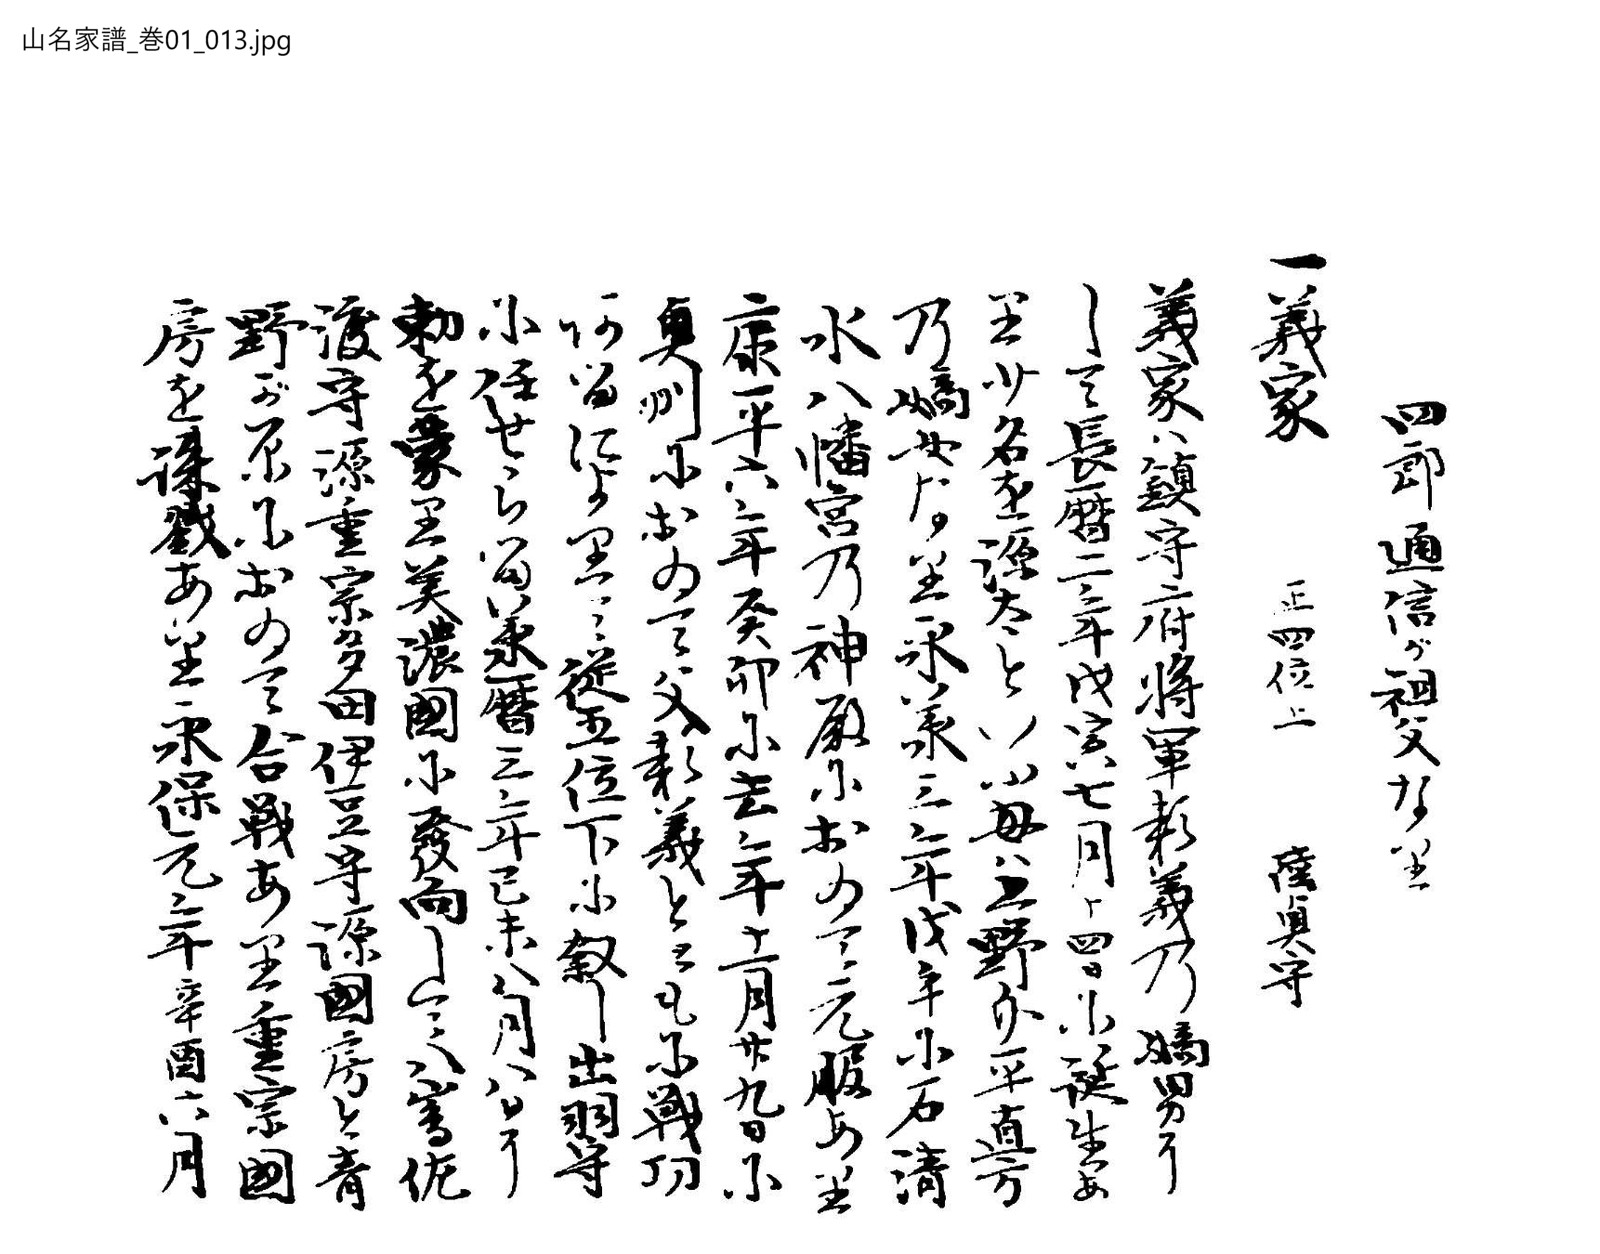 山名家譜_巻01_013.jpg
四郎通信が祖父なり
一義家 正四位上 陸奥守
義家ハ鎮守府将軍頼義乃嫡男に
して長暦二年戊寅七月十四日に誕生あ
り少名を源太といふ母ハ上野介平直方
乃嫡女なり永承三年戊子に石清
水八幡宮乃神殿におゐて元服あり
康平六年癸卯に去年十二月廿九日に
奥州におゐて父頼義とともに戦功
阿るによりて従五位下に叙し出羽守
に任せらる承暦三年己未八月八日に
勅を蒙り美濃國に發向して八嶋佐
渡守源重宗多田伊豆守源國房と青
野が原におゐて合戦あり重宗國
房を誅戮あり永保元年辛酉六月